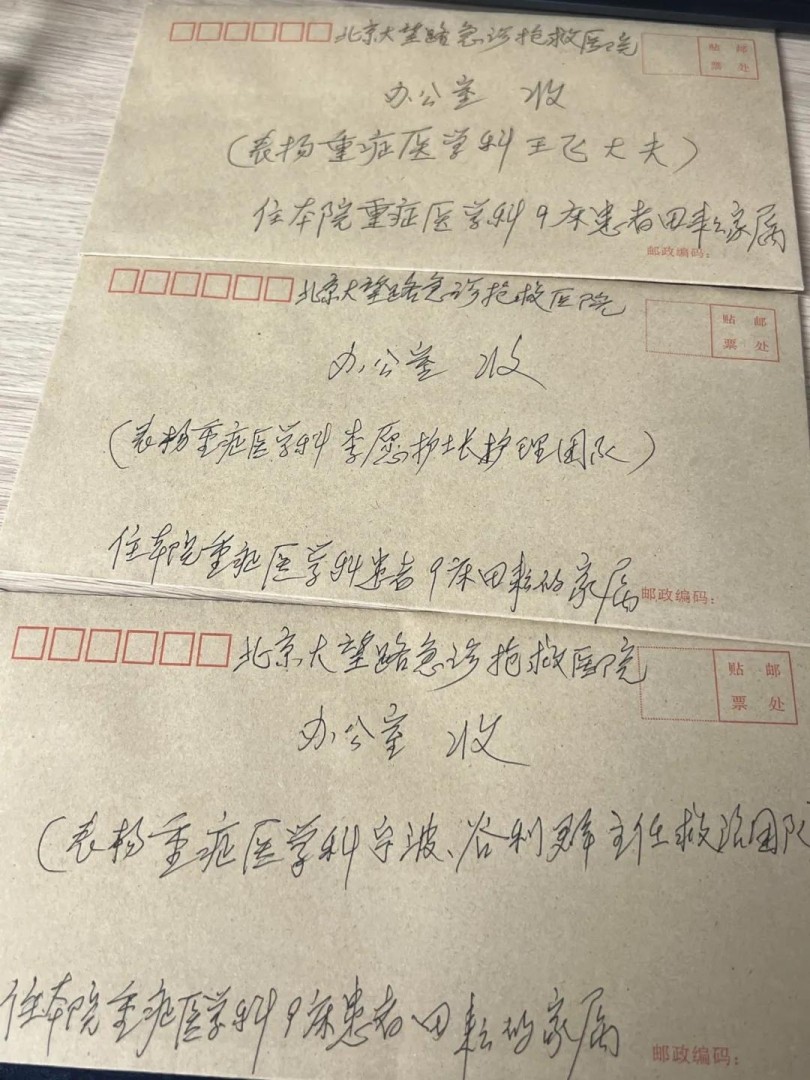 北京大望路急诊抢救医院
贴 邮
票 处
办公室 收
(表扬重症医学科王飞大夫)
住本院重症医学科9床患者田耘家属
邮政编码:
北京大望路急诊抢救医院
贴 邮
票 处
办公室 收
(表扬重症医学科李愿护士长护理团队)
住本院重症医学科患者9床田耘的家属
邮政编码:
北京大望路急诊抢救医院
贴 邮
票 处
办公室 收
(表扬重症医学科宁波、谷利群主任救治团队
住本院重症医学科9床患者田耘的家属
邮政编码: